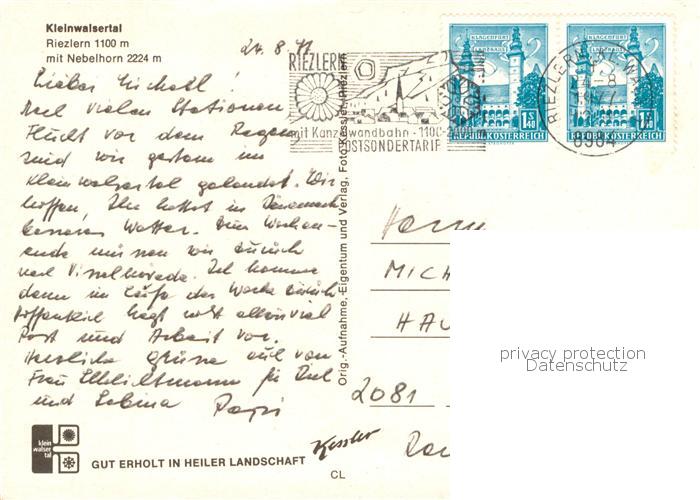 Kleinwalsertal
Riezlern 1100 m
mit Nebelhorn 2224 m
24.8.77
RIEZLERN
mit Kanzelwandbahn - 1100-2000 m
POSTSONDERTARIF
KLAGENFURT
LANDHAUS
S 1.40
REPUBLIK ÖSTERREICH
KLAGENFURT
LANDHAUS
S 1.40
REPUBLIK ÖSTERREICH
RIEZLERN
Lieber Michael!
Nach vielen Stationen
Flucht vor dem Regen
sind wir gestern im
Kleinwalsertal gelandet. Wir
hoffen, Ihr hattet in Dänemark
besseres Wetter. Zum Wochen-
ende müssen wir zurück
nach Visselhövede. Ich komme
dann im Laufe der Woche zurück
Hoffentlich liegt nicht allzuviel
Post und Arbeit vor.
Herzliche Grüsse auch von
Frau für Dich
und Sabina Papi
Orig.-Aufnahme,-Eigentum und Verlag, Foto Kessler, Riezlern
Herrn
MICH
HAU
2081
privacy protection
Datenschutz
klein
walser
tal
GUT ERHOLT IN HEILER LANDSCHAFT
Kessler
CL